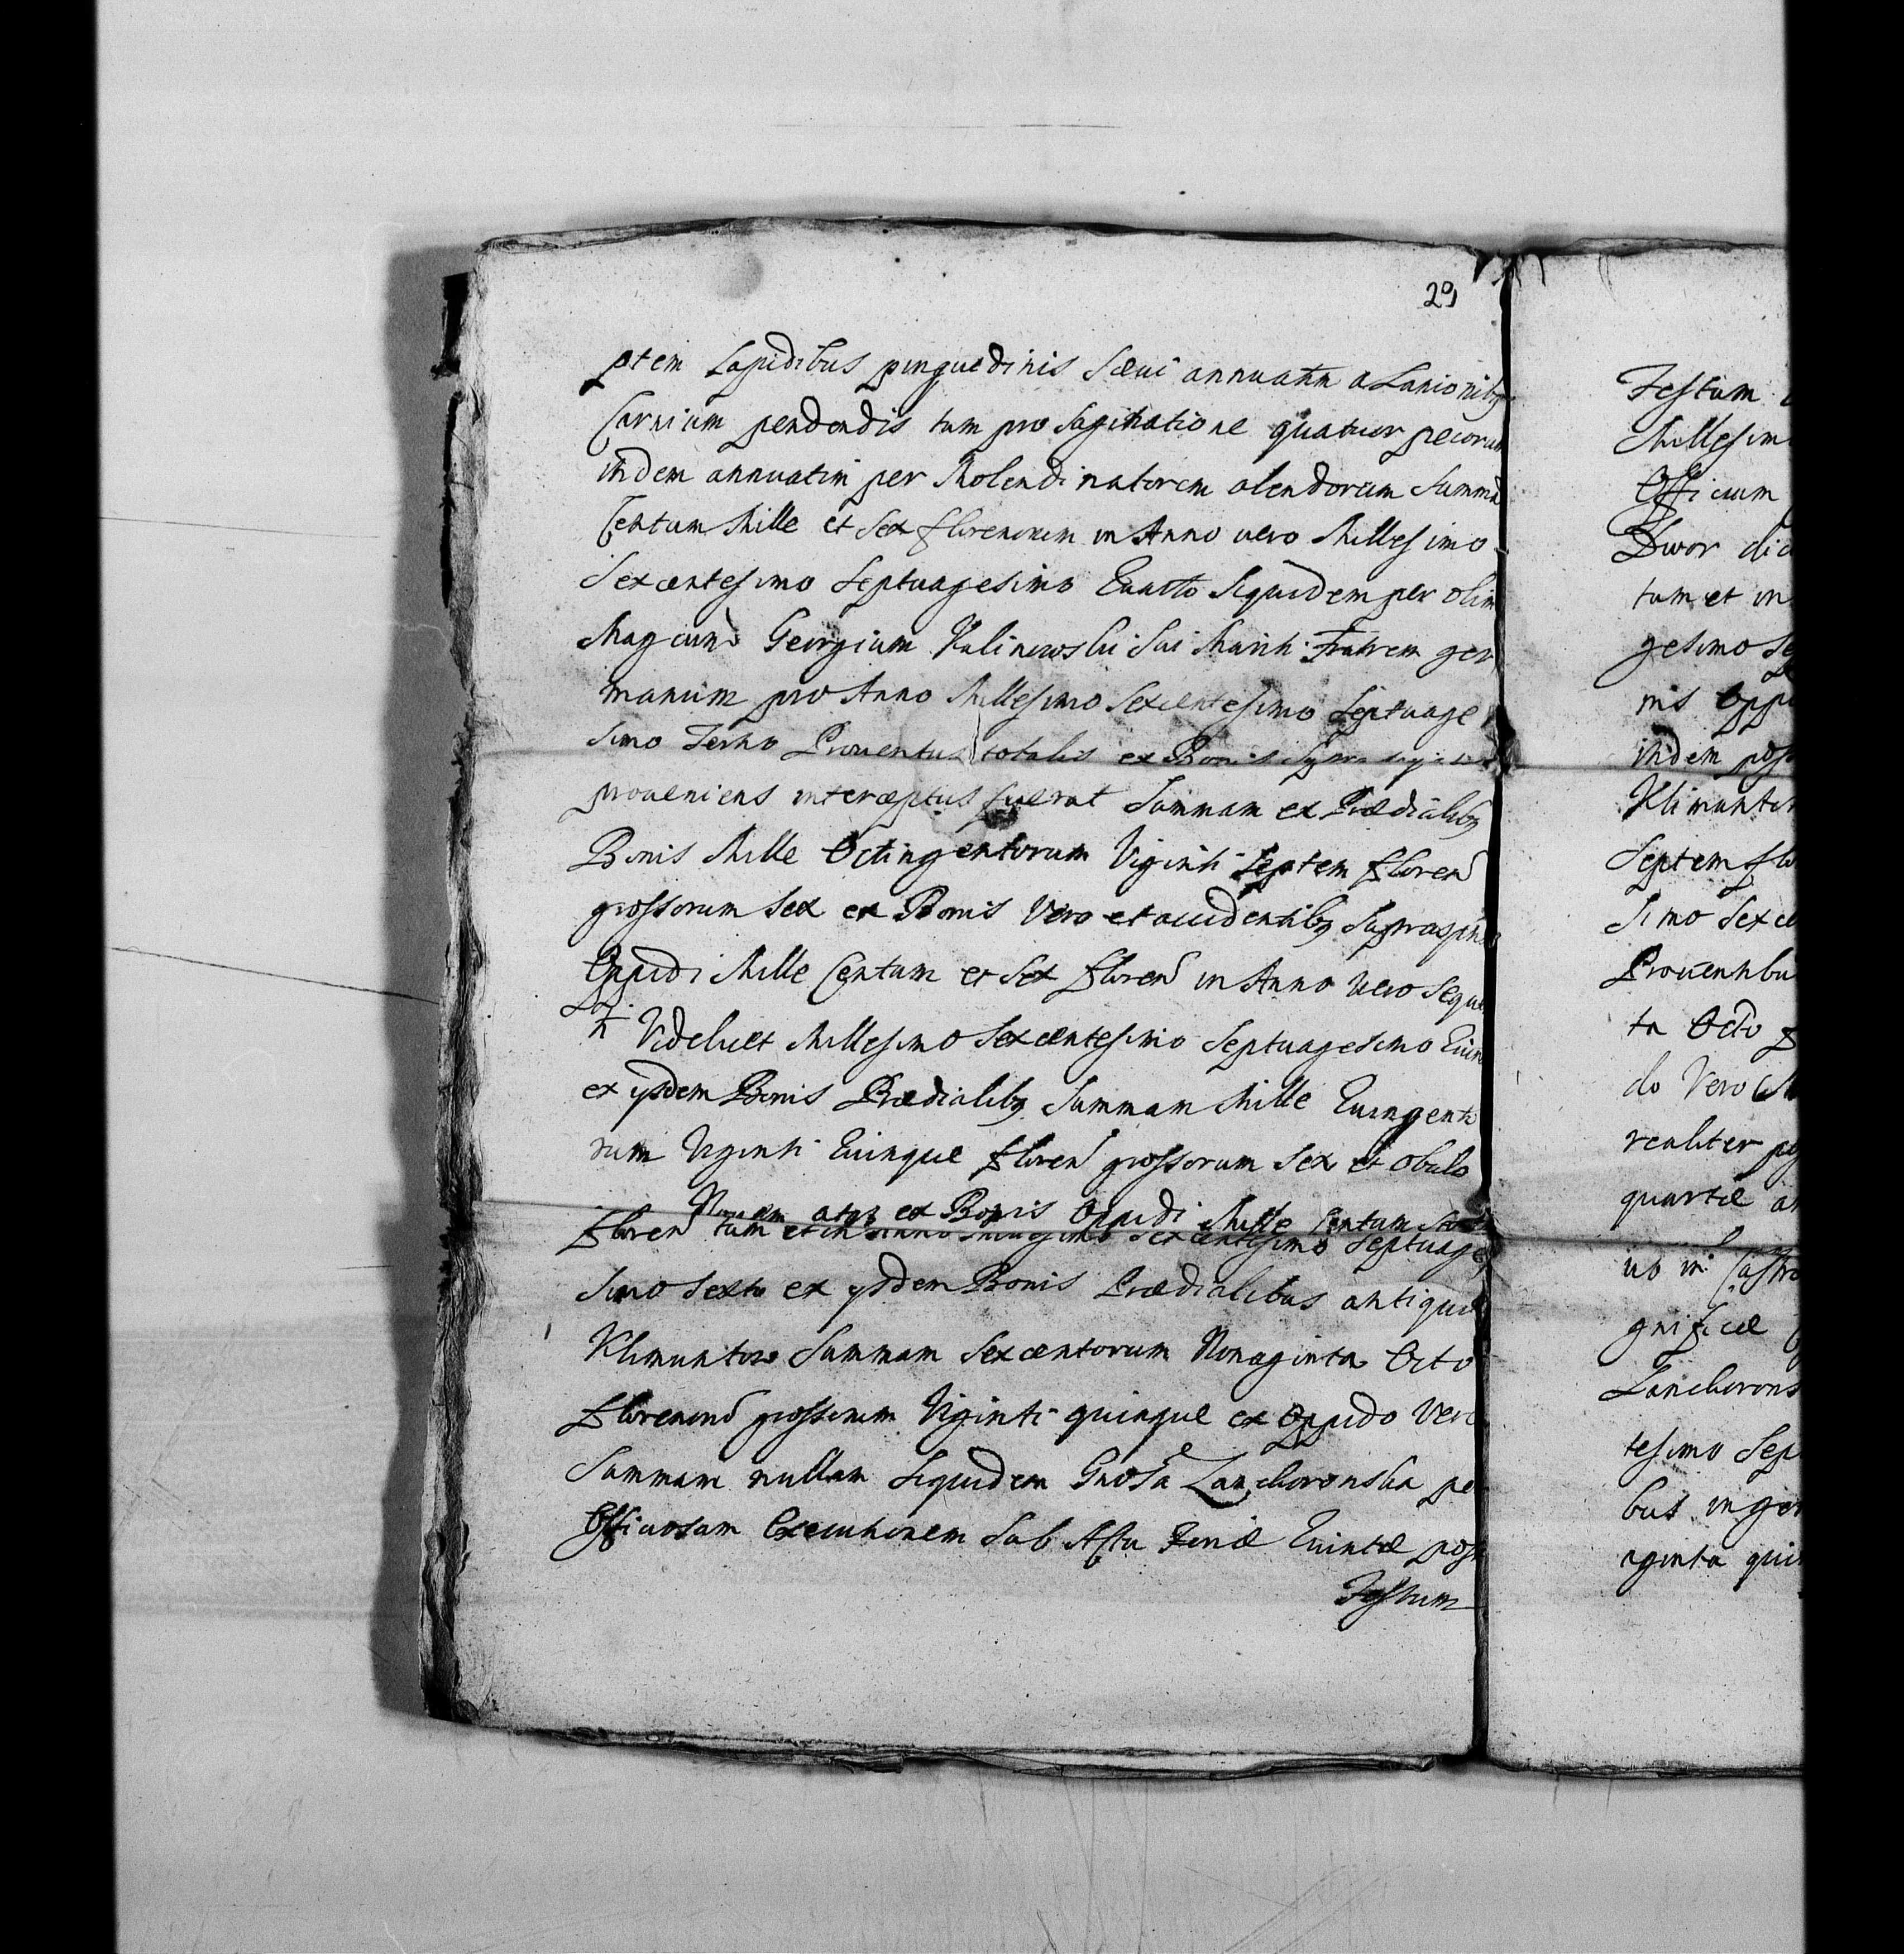 29
ptem Lapidibus pinguedinis Sævi annuatim a Lanionibq
Carnium pendendis tum pro Saginatione quatuor pecorum
ibidem annuatim per Molendinatorem alendorum Summã
Centum Mille et Sex florenorum in Anno vero Millesimo
Sexcentesimo Septuagesimo Quarto Siquidem per olim
Magcum Georgium Kalinowski Sui Mariti Fratrem ger
manum pro Anno Millesimo Sexcentesimo Septuage
simo Tertio Proventus totalis ex Bonis
proveniens interceptus fuerat Summam ex Prædialibq
Bonis Mille Octingentorum Viginti Septem floren
grossorum Sex ex Bonis Vero et accidentibq
Oppidi Mille Centum et Sex floren in Anno Vero Seque
ti Videlicet Millesimo Sexcentesimo Septuagesimo Quin
ex ijsdem Bonis Prædialibq Summam Mille Quingento
rum Viginti Quinque floren grossorum Sex et obulo
ex Bonis Oppidi Mille Centum
floren tum et in Anno Millesimo Sexcentesimo Septuage
simo Sexto ex ijsdem Bonis Prædialibus antiquæ
Klimuntow Summam Sexcentorum Nonaginta Octo
florenorum grossorum Viginti quinque ex Oppido Vero
Summam nullam Siquidem Gnosa Lanchoronska pe
Officiosam Executionem Sub Actu Feriæ Quintæ post
Festum
Festum
Millesim
Officium
Dwor dic
tum et in
gesimo Se
nis Oppi
ibidem pos
Klimunto
Septem flo
simo Sexce
Proventibu
ta Octo f
do Vero
realiter pe
quartæ an
uo in Castro
gnificæ
Lanchorons
tesimo Sep
bus inger
aginta quin